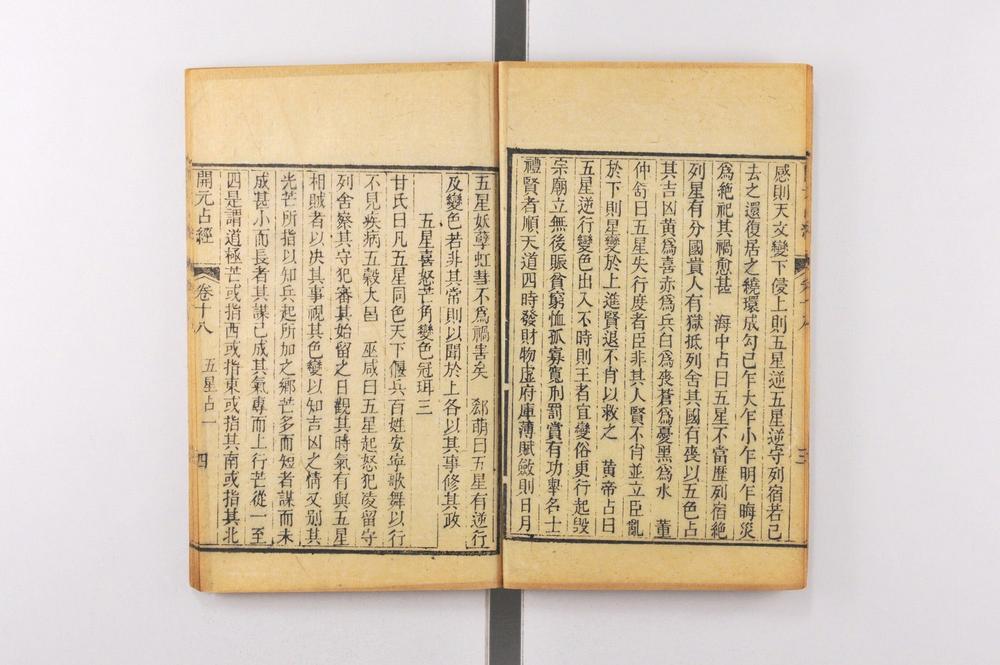 感則天文變下侵上則五星逆五星逆守列宿若已
去之還復居之繞環成勾已乍大乍小乍明乍晦災
為絶祀其禍愈甚　海中占曰五星不當歷列宿絶
列星有分國貴人有獄抵列舍其國有喪以五色占
其吉凶黄為喜赤為兵白為喪蒼為憂黑為水　董
仲舒曰五星失行度者臣非其人賢不肖並立臣亂
於下則星變於上進賢退不肖以救之　黄帝占曰
五星逆行變色出入不時則王者宜變俗更行起毁
宗廟立無後賑貧窮恤孤寡寬刑罰賞有功舉名士
禮賢者順天道四時發財物虚府庫薄賦斂則日月
三
五星妖孽虹彗不為禍害矣　郄萌曰五星有逆行
及變色若非其常則以聞於上各以其事修其政
五星喜怒芒角變色冠珥三
甘氏曰凡五星同色天下偃兵百姓安寧歌舞以行
不見疾病五穀大昌　巫咸曰五星起怒犯凌留守
列舍察其守犯審其始留之日觀其時氣有與五星
相賊者以决其事視其色變以知吉凶之情又别其
光芒所指以知兵起所加之鄉芒多而短者謀而未
成甚小而長者其謀已成其氣專而上行芒從一至
四是謂道極芒或指西或指東或指其南或指其北
開元占經　卷十八　五星占一　四